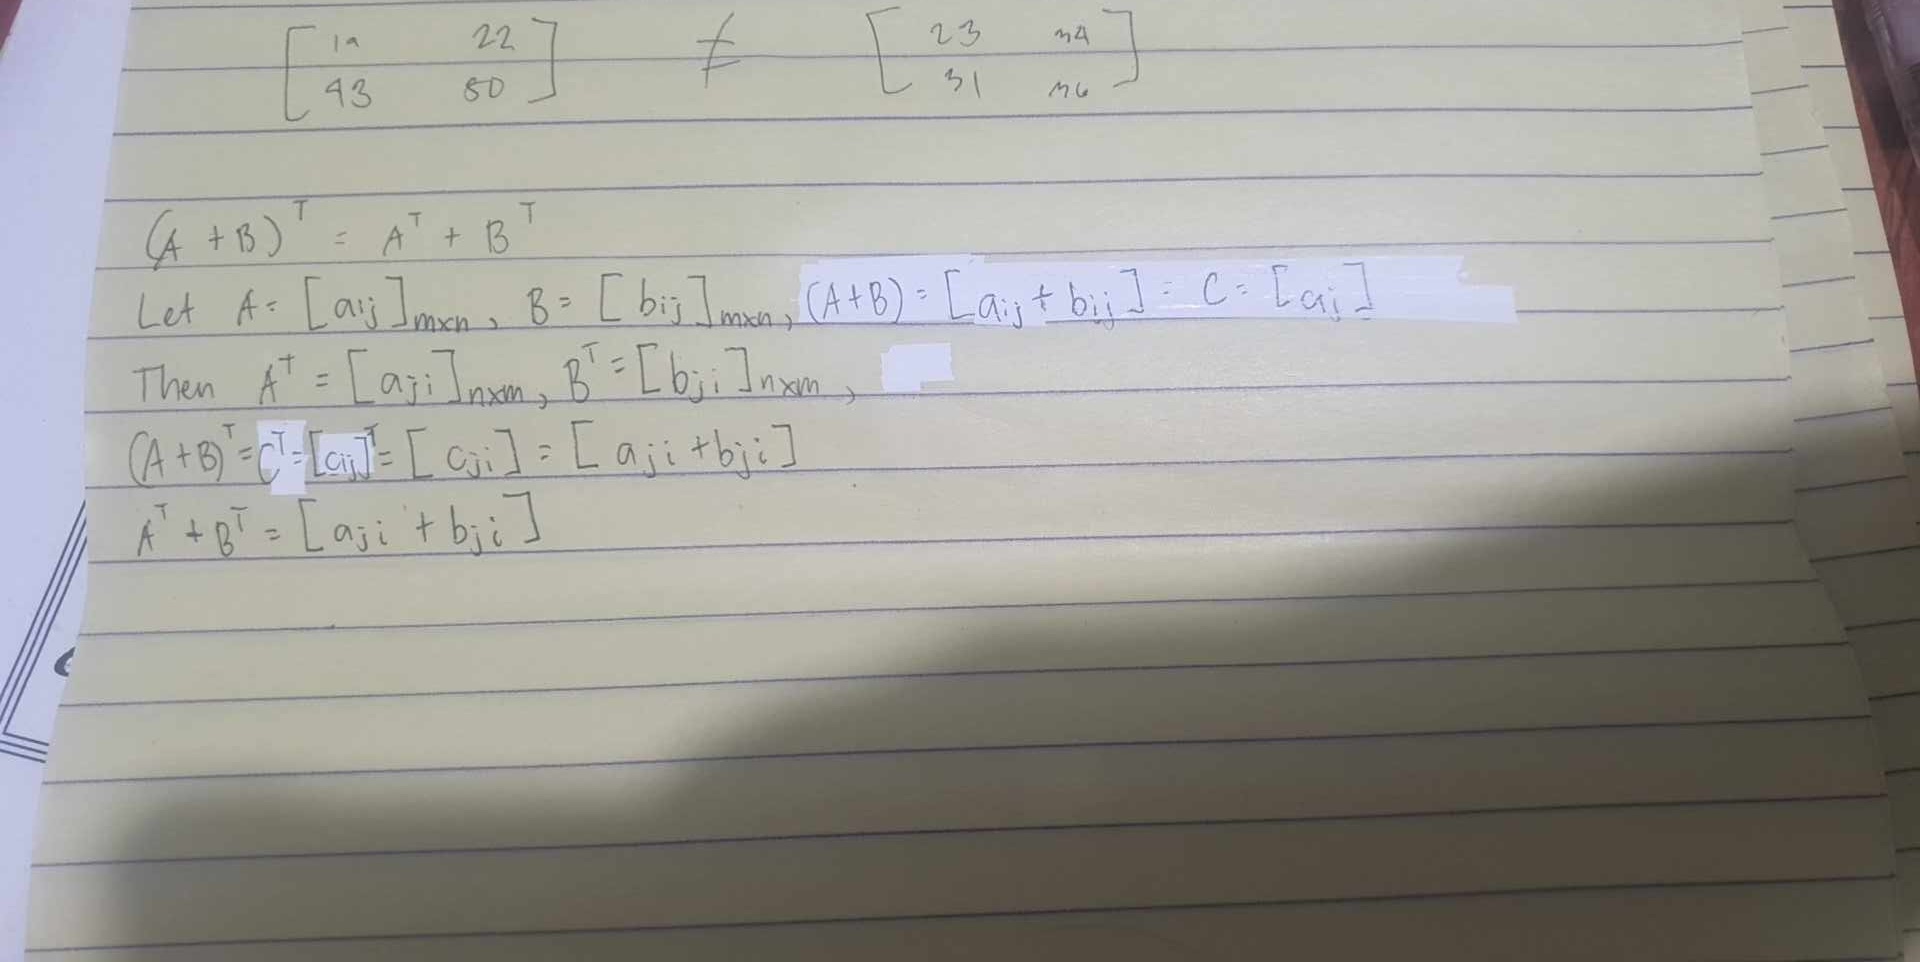 [ 19 22 ] ≠ [ 23 34 ]
[ 43 50 ] [ 31 46 ]
(A + B)ᵀ = Aᵀ + Bᵀ
Let A = [aij]mxn, B = [bij]mxn, (A+B) = [aij + bij] = C = [cij]
Then Aᵀ = [aji]nxm, Bᵀ = [bji]nxm,
(A+B)ᵀ = Cᵀ = [cij]ᵀ = [cji] = [aji + bji]
Aᵀ + Bᵀ = [aji + bji]